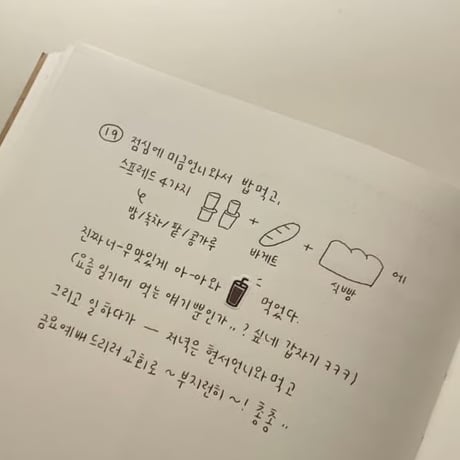 19 점심에 미금언니와서 밥먹고,
스프레드 4가지 + + 에
밤/녹차/팥/콩가루 바게트 식빵
진짜너-무맛있게 아-아와 먹었다.
(요즘 일기에 먹는 얘기뿐인가..? 싶네 갑자기 ㅋㅋㅋ)
그리고 일 하다가 — 저녁은 현서언니와 먹고
금요예배 드리러 교회로 ~ 부지런히 ~! 총총..